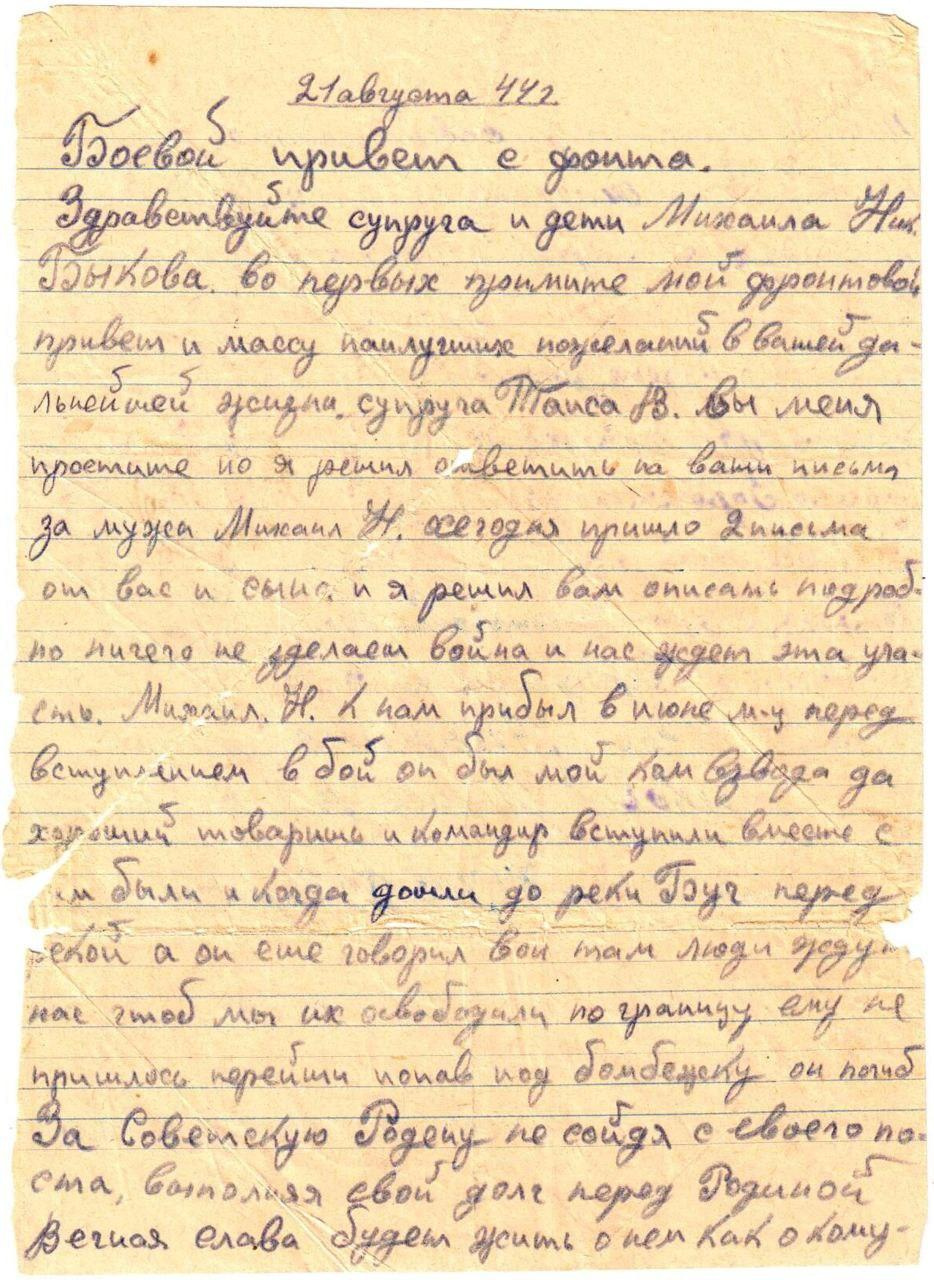 21 августа 44 г.
Боевой привет с фонта.
Здравствуйте супруга и дети Михаила Ник.
Быкова. во первых примите мой фронтовой
привет и массу наилучших пожеланий в вашей да-
льнейшей жизни. супруга Таиса В. вы меня
простите но я решил ответить на ваши письма
за мужа Михаил Н. сегодня пришло 2 письма
от вас и сына и я решил вам описать подроб-
но ничего не зделаеш война и нас ждет эта уча-
сть. Михаил. Н. к нам прибыл в июне м-ц перед
вступлением в бой он был мой ком взвода да
хороший товарищь и командир вступили вместе с
им были и когда дошли до реки Буг перед
екой а он еше говорил вон там люди ждут
нас чтоб мы их освободили но границу ему не
пришлось перейти попав под бомбежку он погиб
За Советскую Родену не сойдя с своего по-
ста, выполняя свой долг перед Родиной
Вечная слава будет жить о нем как о кому-